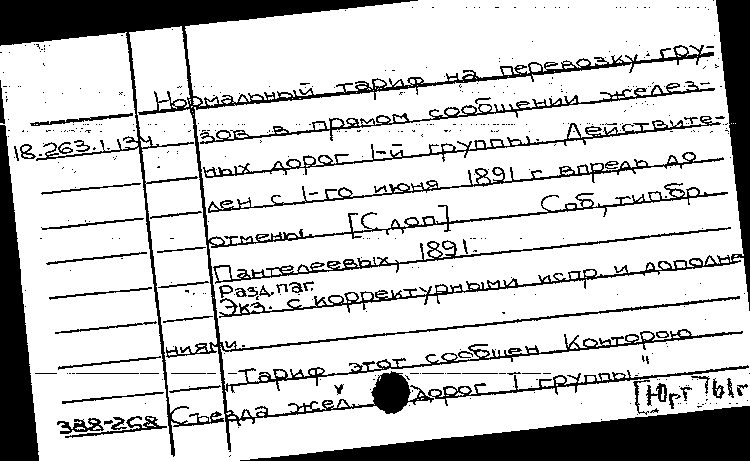 Нормальный тариф на перевозку гру-
18.263.1.134. зов в прямом сообщении желез-
ных дорог 1-й группы. Действите-
лен с 1-го июня 1891 г впредь до
отмены. [С доп.] Спб., тип. бр.
Пантелеевых, 1891.
Разд. паг.
Экз. с корректурными испр. и дополне
ниями.
"Тариф этот сообщен Конторою
388-268 Съезда жел. дорог I группы"